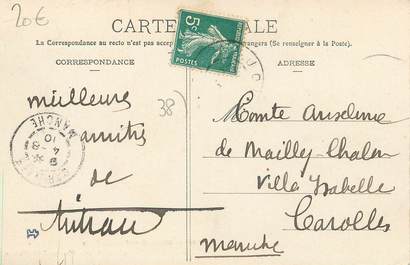 20€
CARTE POSTALE
La Correspondance au recto n'est pas accep
rangers (Se renseigner à la Poste).
CORRESPONDANCE
ADRESSE
5c
POSTES
38)
meilleures
amitiés
de
MANCHE
Comte Anselme
de Mailly-Chalon
Villa Ysabelle
Carolles
Manche